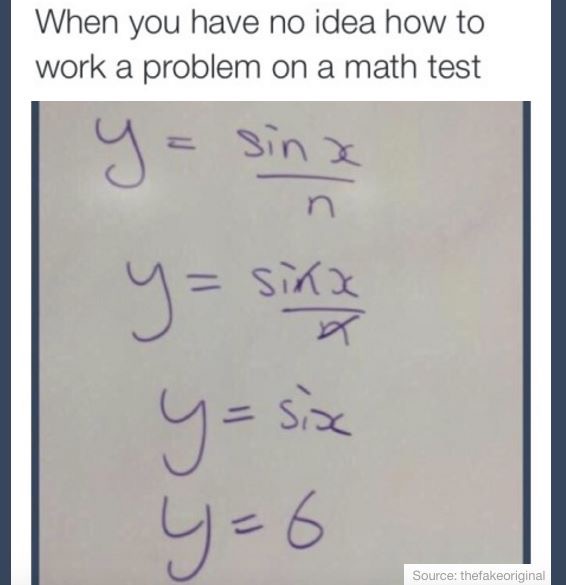 When you have no idea how to
work a problem on a math test
y = sin x
n
y = sin x
n
y = six
y = 6
Source: thefakeoriginal